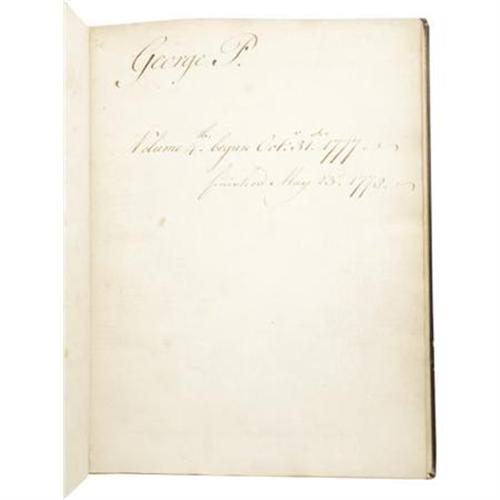 George P.
Volume 4th. begun Octr. 31st. 1777.
finished May 23d. 1778.